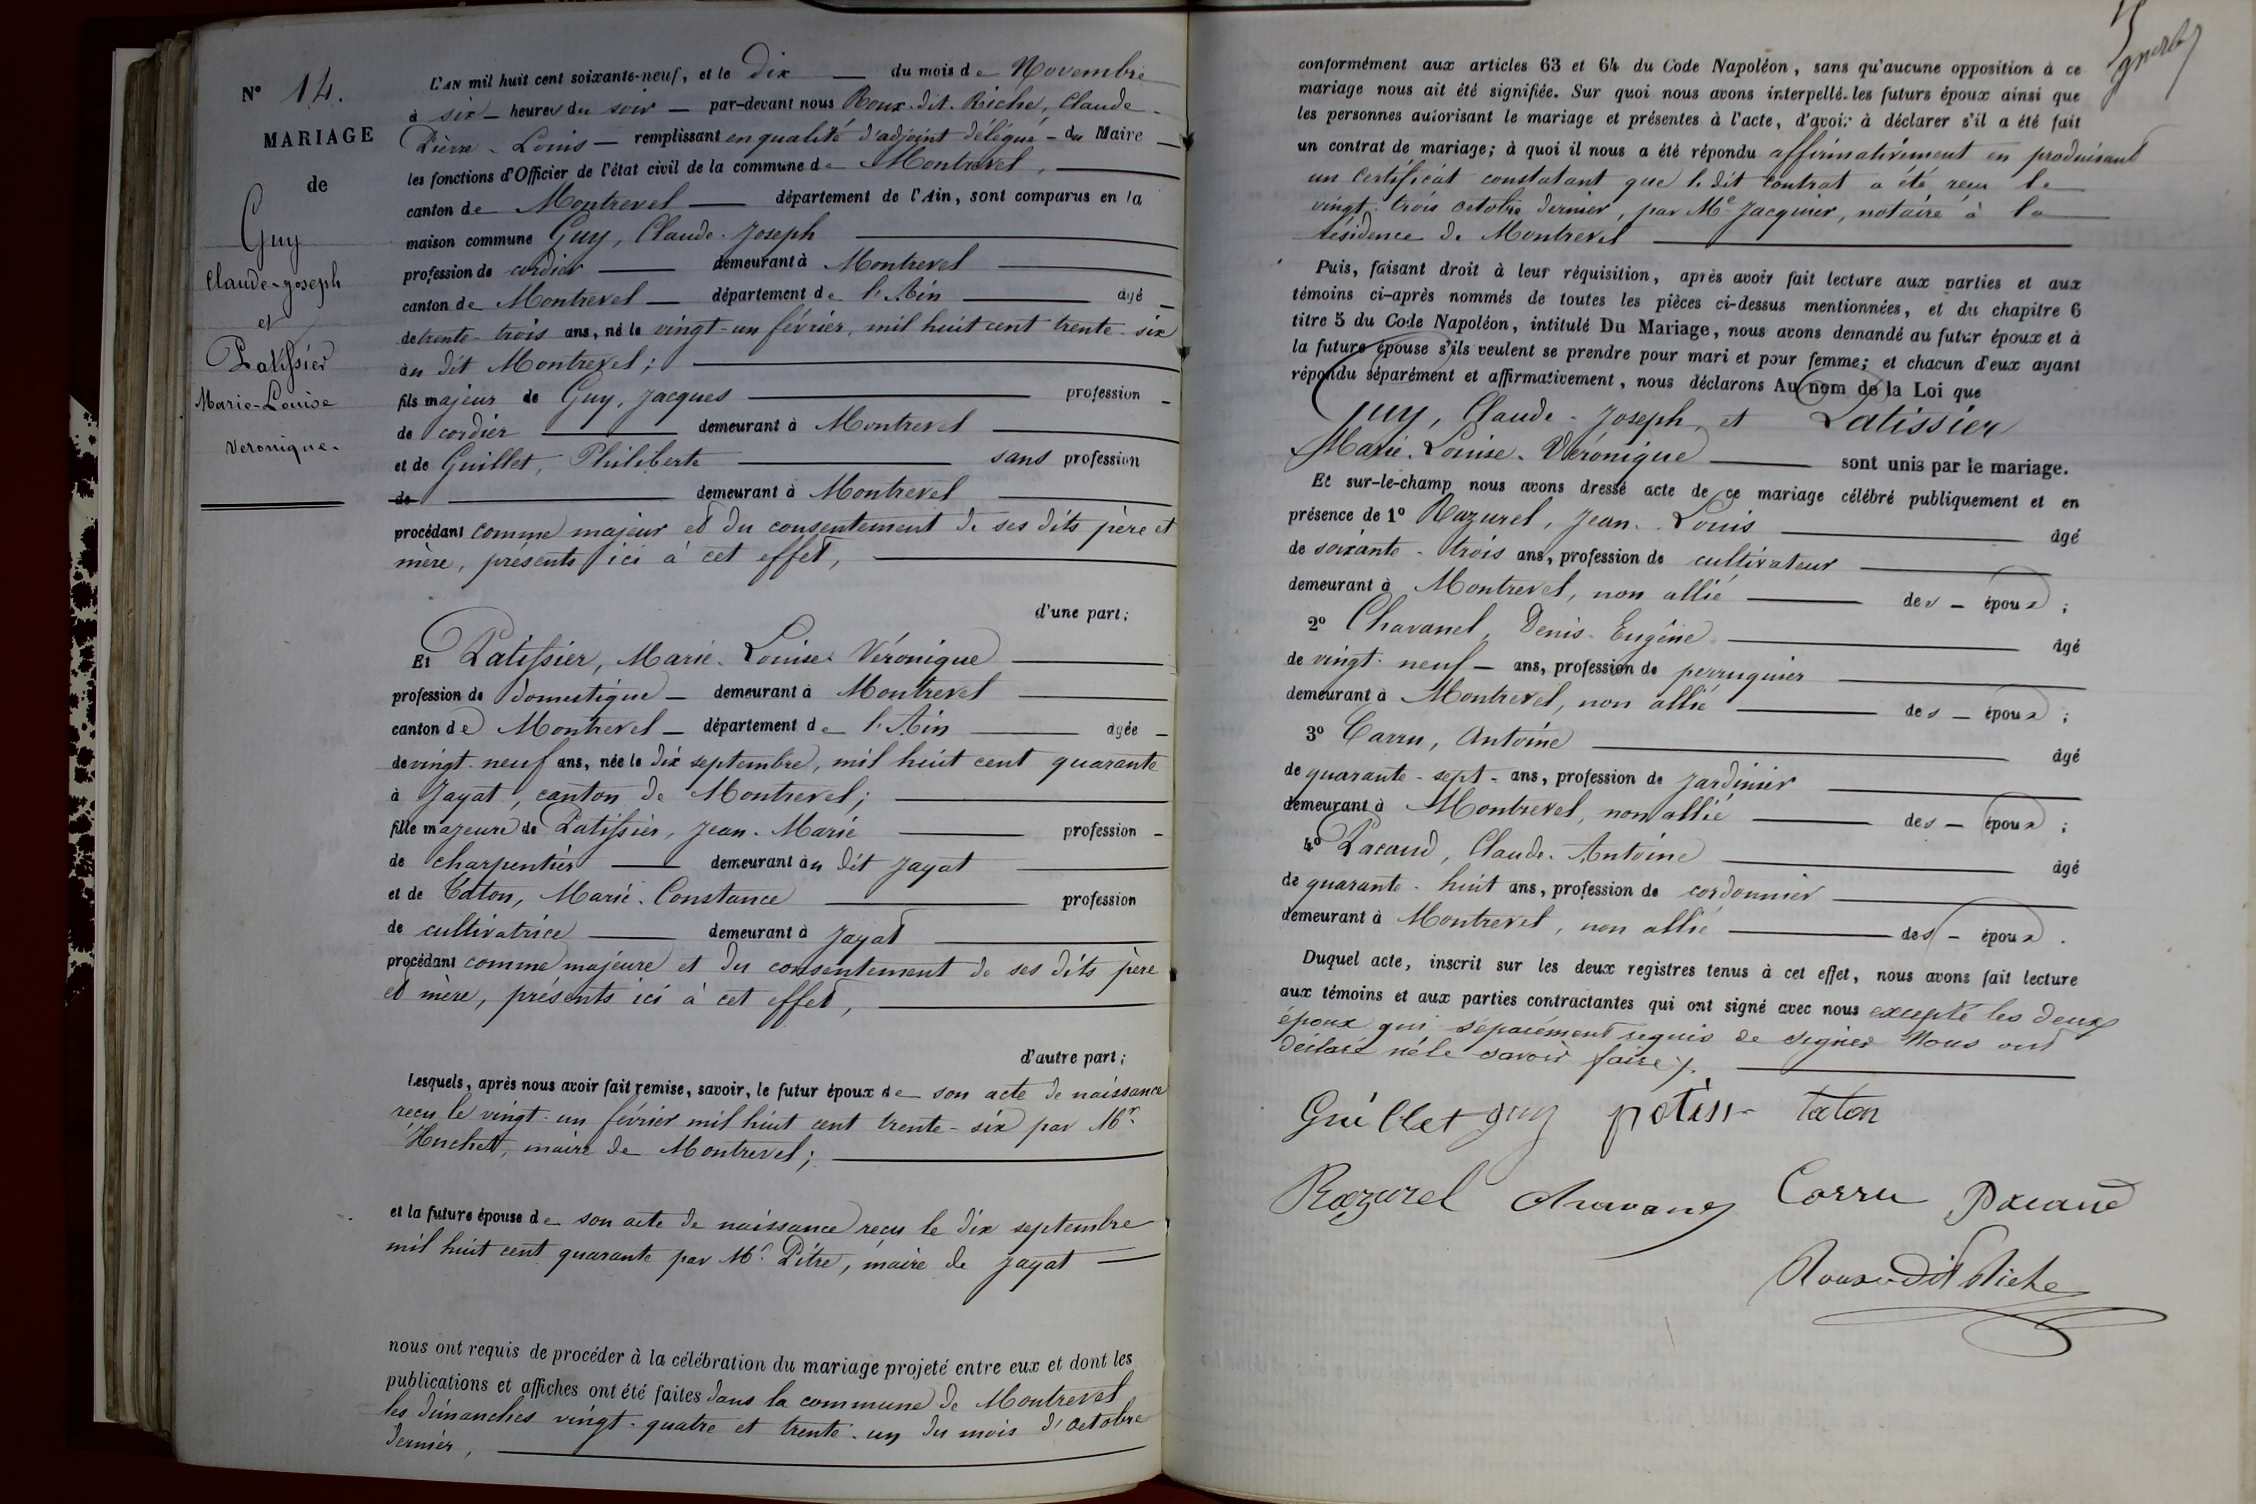 N° 14.
MARIAGE
de
Guy
Claude-Joseph
et
Patissier
Marie-Louise
Veronique.
L'AN mil huit cent soixante-neuf, et le dix du mois de Novembre
à six heures du soir par-devant nous Roux-dit-Riche, Claude
Pierre-Louis remplissant en qualité d'adjoint délégué du Maire
les fonctions d'Officier de l'état civil de la commune de Montrevel,
canton de Montrevel département de l'Ain, sont comparus en la
maison commune Guy, Claude-Joseph
profession de cordier demeurant à Montrevel
canton de Montrevel département de l'Ain âgé
de trente-trois ans, né le vingt-un février, mil huit cent trente-six
au dit Montrevel;
fils majeur de Guy, Jacques profession
de cordier demeurant à Montrevel
et de Guillet, Philiberte sans profession
de demeurant à Montrevel
procédant comme majeur et du consentement de ses dits père et
mère, présents ici à cet effet,
d'une part;
Et Patissier, Marie-Louise-Véronique
profession de domestique demeurant à Montrevel
canton de Montrevel département de l'Ain âgée
de vingt-neuf ans, née le dix septembre, mil huit cent quarante
à Jayat, canton de Montrevel;
fille majeure de Patissier, Jean-Marie profession
de charpentier demeurant au dit Jayat
et de Taton, Marie-Constance profession
de cultivatrice demeurant à Jayat
procédant comme majeure et du consentement de ses dits père
et mère, présents ici à cet effet,
d'autre part;
Lesquels, après nous avoir fait remise, savoir, le futur époux de son acte de naissance
reçu le vingt-un février mil huit cent trente-six par Mr
Huchet, maire de Montrevel;
et la future épouse de son acte de naissance reçu le dix septembre
mil huit cent quarante par Mr. Pitre, maire de Jayat
nous ont requis de procéder à la célébration du mariage projeté entre eux et dont les
publications et affiches ont été faites dans la commune de Montrevel
les dimanches vingt-quatre et trente-un du mois d'octobre
dernier,
conformément aux articles 63 et 64 du Code Napoléon, sans qu'aucune opposition à ce
mariage nous ait été signifiée. Sur quoi nous avons interpellé les futurs époux ainsi que
les personnes autorisant le mariage et présentes à l'acte, d'avoir à déclarer s'il a été fait
un contrat de mariage; à quoi il nous a été répondu affirmativement en produisant
un certificat constatant que le dit contrat a été reçu le
vingt-trois octobre dernier, par Me Jacquier, notaire à la
résidence de Montrevel
Puis, faisant droit à leur réquisition, après avoir fait lecture aux parties et aux
témoins ci-après nommés de toutes les pièces ci-dessus mentionnées, et du chapitre 6
titre 5 du Code Napoléon, intitulé Du Mariage, nous avons demandé au futur époux et à
la future épouse s'ils veulent se prendre pour mari et pour femme; et chacun d'eux ayant
répondu séparément et affirmativement, nous déclarons Au nom de la Loi que
Guy, Claude-Joseph, et Patissier
Marie-Louise-Véronique sont unis par le mariage.
Et sur-le-champ nous avons dressé acte de ce mariage célébré publiquement et en
présence de 1° Razurel, Jean-Louis âgé
de soixante-trois ans, profession de cultivateur
demeurant à Montrevel, non allié des époux;
2° Chavanel, Denis-Eugène âgé
de vingt-neuf ans, profession de perruquier
demeurant à Montrevel, non allié des époux;
3° Carru, Antoine âgé
de quarante-sept ans, profession de jardinier
demeurant à Montrevel, non allié des époux;
4° Pacaud, Claude-Antoine âgé
de quarante-huit ans, profession de cordonnier
demeurant à Montrevel, non allié des époux.
Duquel acte, inscrit sur les deux registres tenus à cet effet, nous avons fait lecture
aux témoins et aux parties contractantes qui ont signé avec nous excepté les deux
époux qui séparément requis de signer Nous ont
déclaré ne le savoir faire.
Guillet guy patissi taton
Razurel Chavanel Corru Pacaud
Roux-Dit Riche